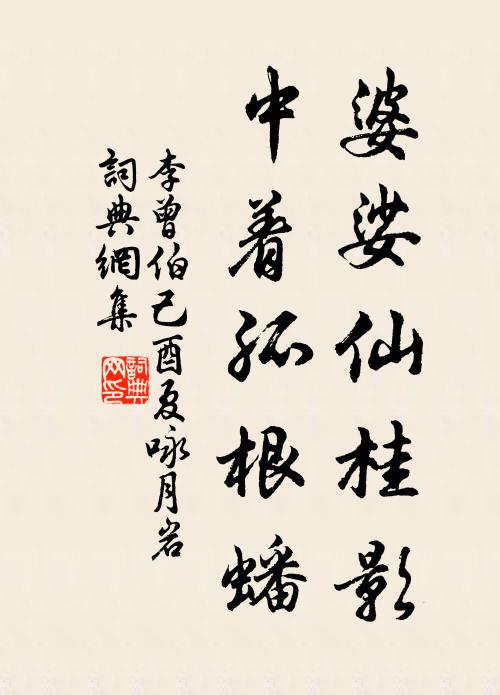 婆娑仙桂影
中着孤根蟠
李曾伯己酉夏咏月岩
詞典網集
詞典
网印